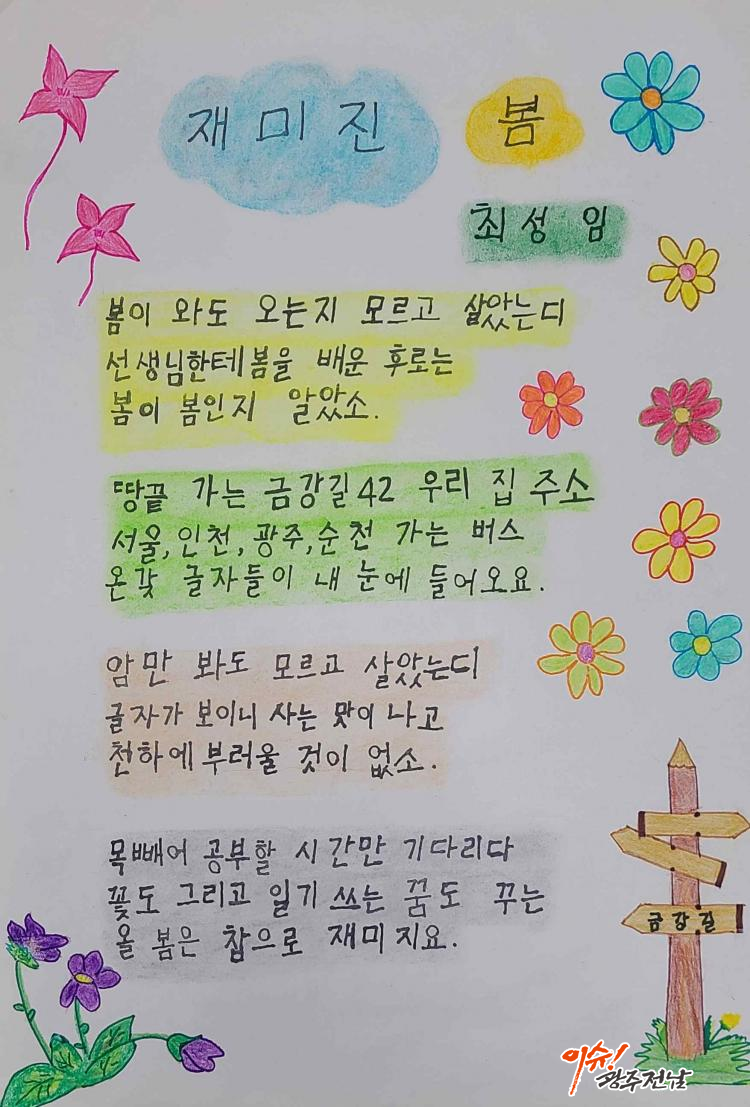 재미진 봄
최성임
봄이 와도 오는지 모르고 살았는디
선생님한테 봄을 배운 후로는
봄이 봄인지 알았소.
땅끝 가는 금강길 42 우리 집 주소
서울, 인천, 광주, 순천 가는 버스
온갖 글자들이 내 눈에 들어오요.
암만 봐도 모르고 살았는디
글자가 보이니 사는 맛이 나고
천하에 부러울 것이 없소.
목빼어 공부할 시간만 기다리다
꽃도 그리고 일기 쓰는 꿈도 꾸는
올 봄은 참으로 재미지요.
금강길
이슈!
광주전남